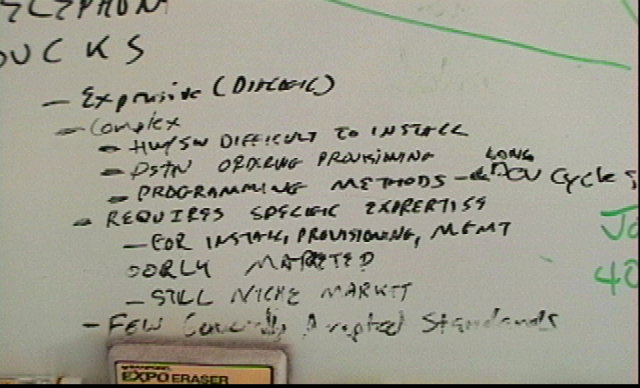 TELEPHON
UCKS
- Expensive (DIALOGIC)
- Complex
- HW/SW DIFFICULT TO INSTALL
- PSTN ORDERING PROVISIONING
- PROGRAMMING METHODS - LONG DEV Cycles
- REQUIRES SPECIFIC EXPERTISE
- FOR INSTALL, PROVISIONING, MGMT
OORLY MARKETED
- STILL NICHE MARKET
- FEW Generally Accepted Standards
EXPO ERASER